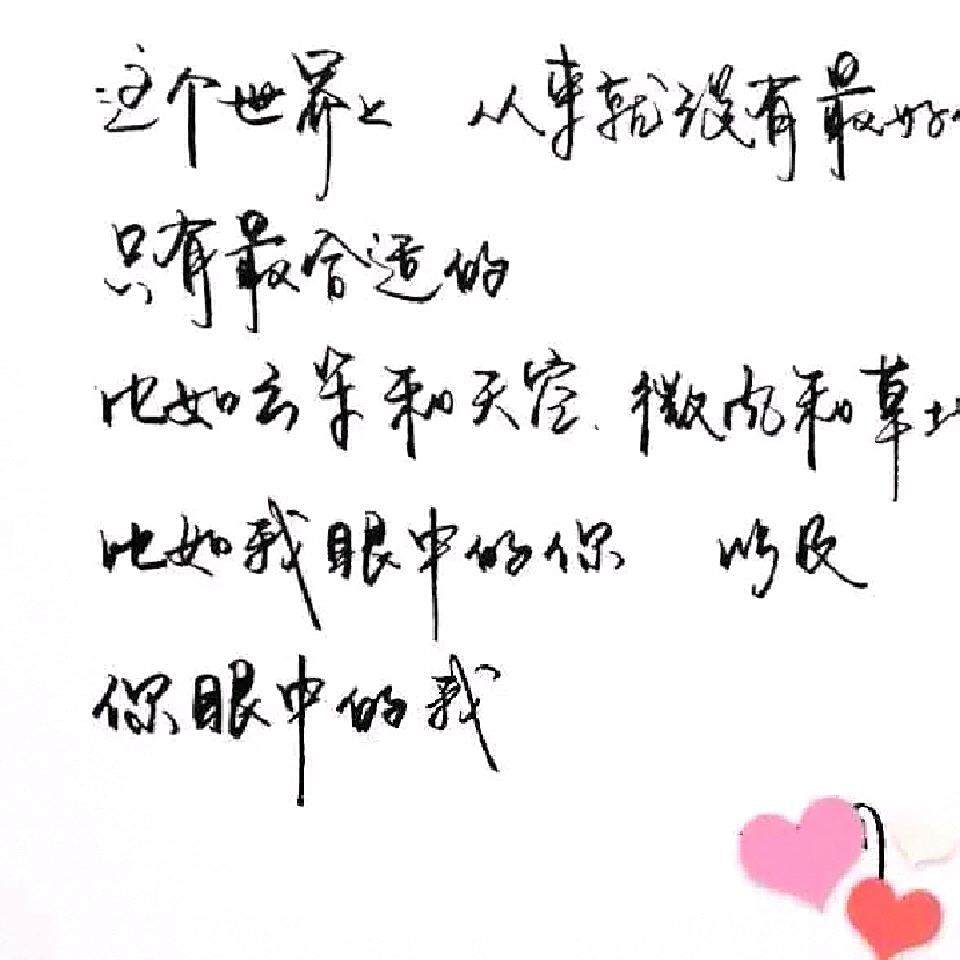 这个世界上 从来就没有最好
只有最合适的
比如云朵和天空.微风和草地
比如我眼中的你 以及
你眼中的我